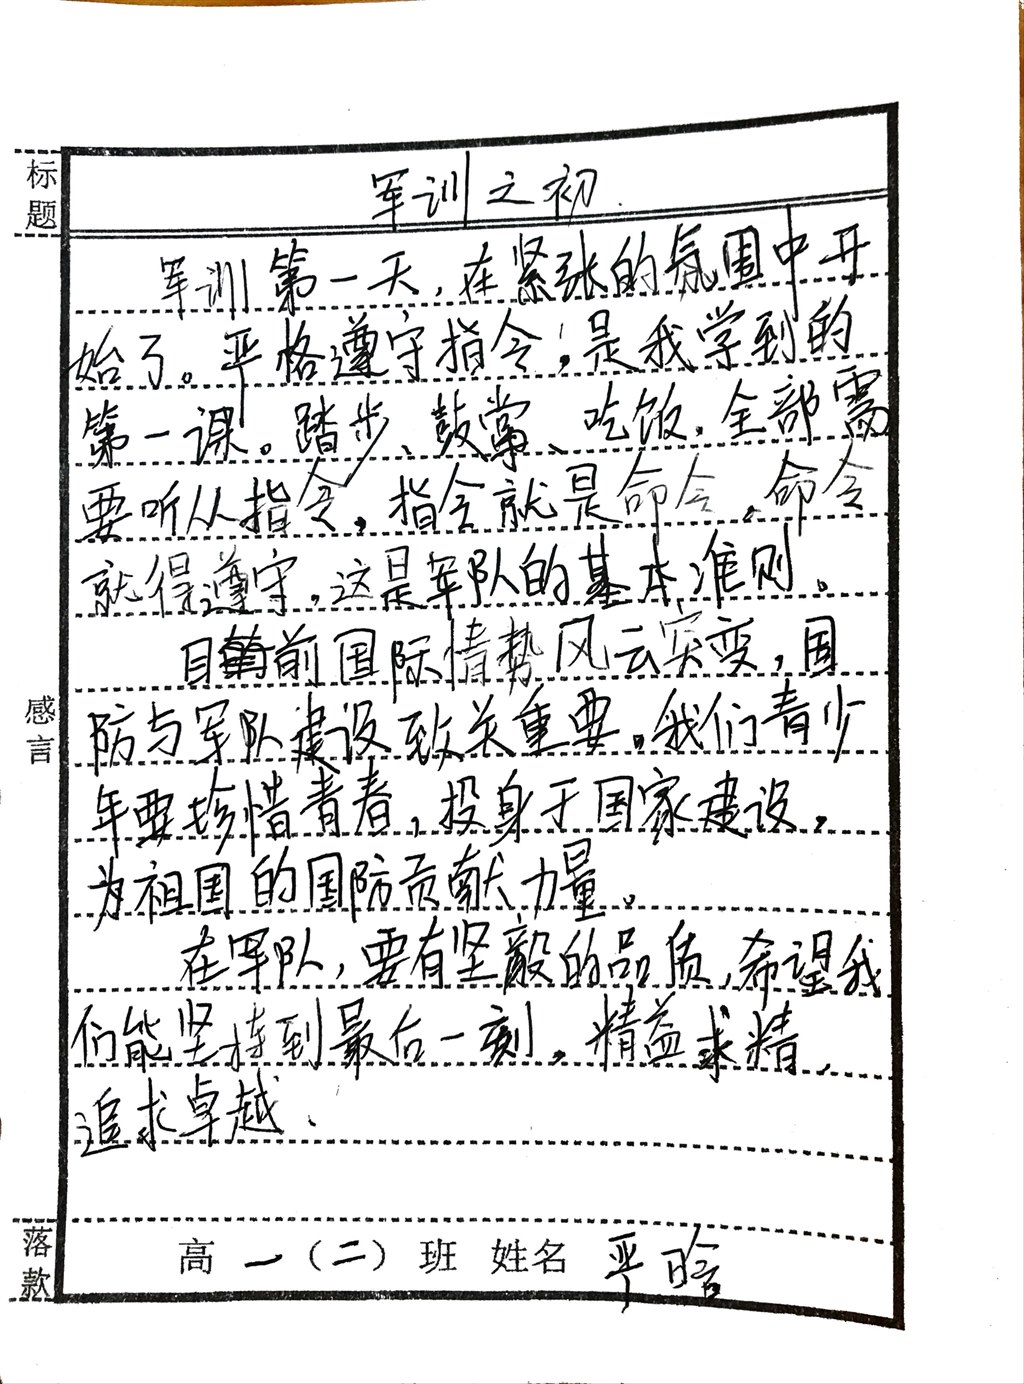 标题
军训之初.
军训第一天,在紧张的氛围中开
始了。严格遵守指令,是我学到的
第一课。踏步、鼓掌、吃饭,全部需
要听从指令,指令就是命令,命令
就得遵守,这是军队的基本准则。
目前国际情势风云突变,国
防与军队建设致关重要,我们青少
年要珍惜青春,投身于国家建设,
为祖国的国防贡献力量。
感言
在军队,要有坚毅的品质,希望我
们能坚持到最后一刻,精益求精,
追求卓越.
落款
高一(二)班 姓名 严晗